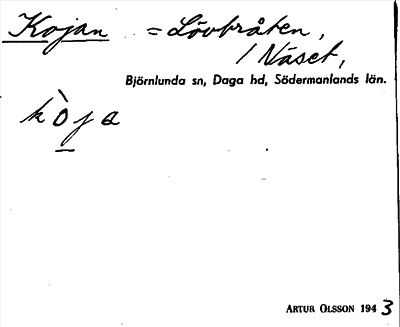 Kojan = Lövbråten,
/ Näset,
Björnlunda sn, Daga hd, Södermanlands län.
kòja
ARTUR OLSSON 1943